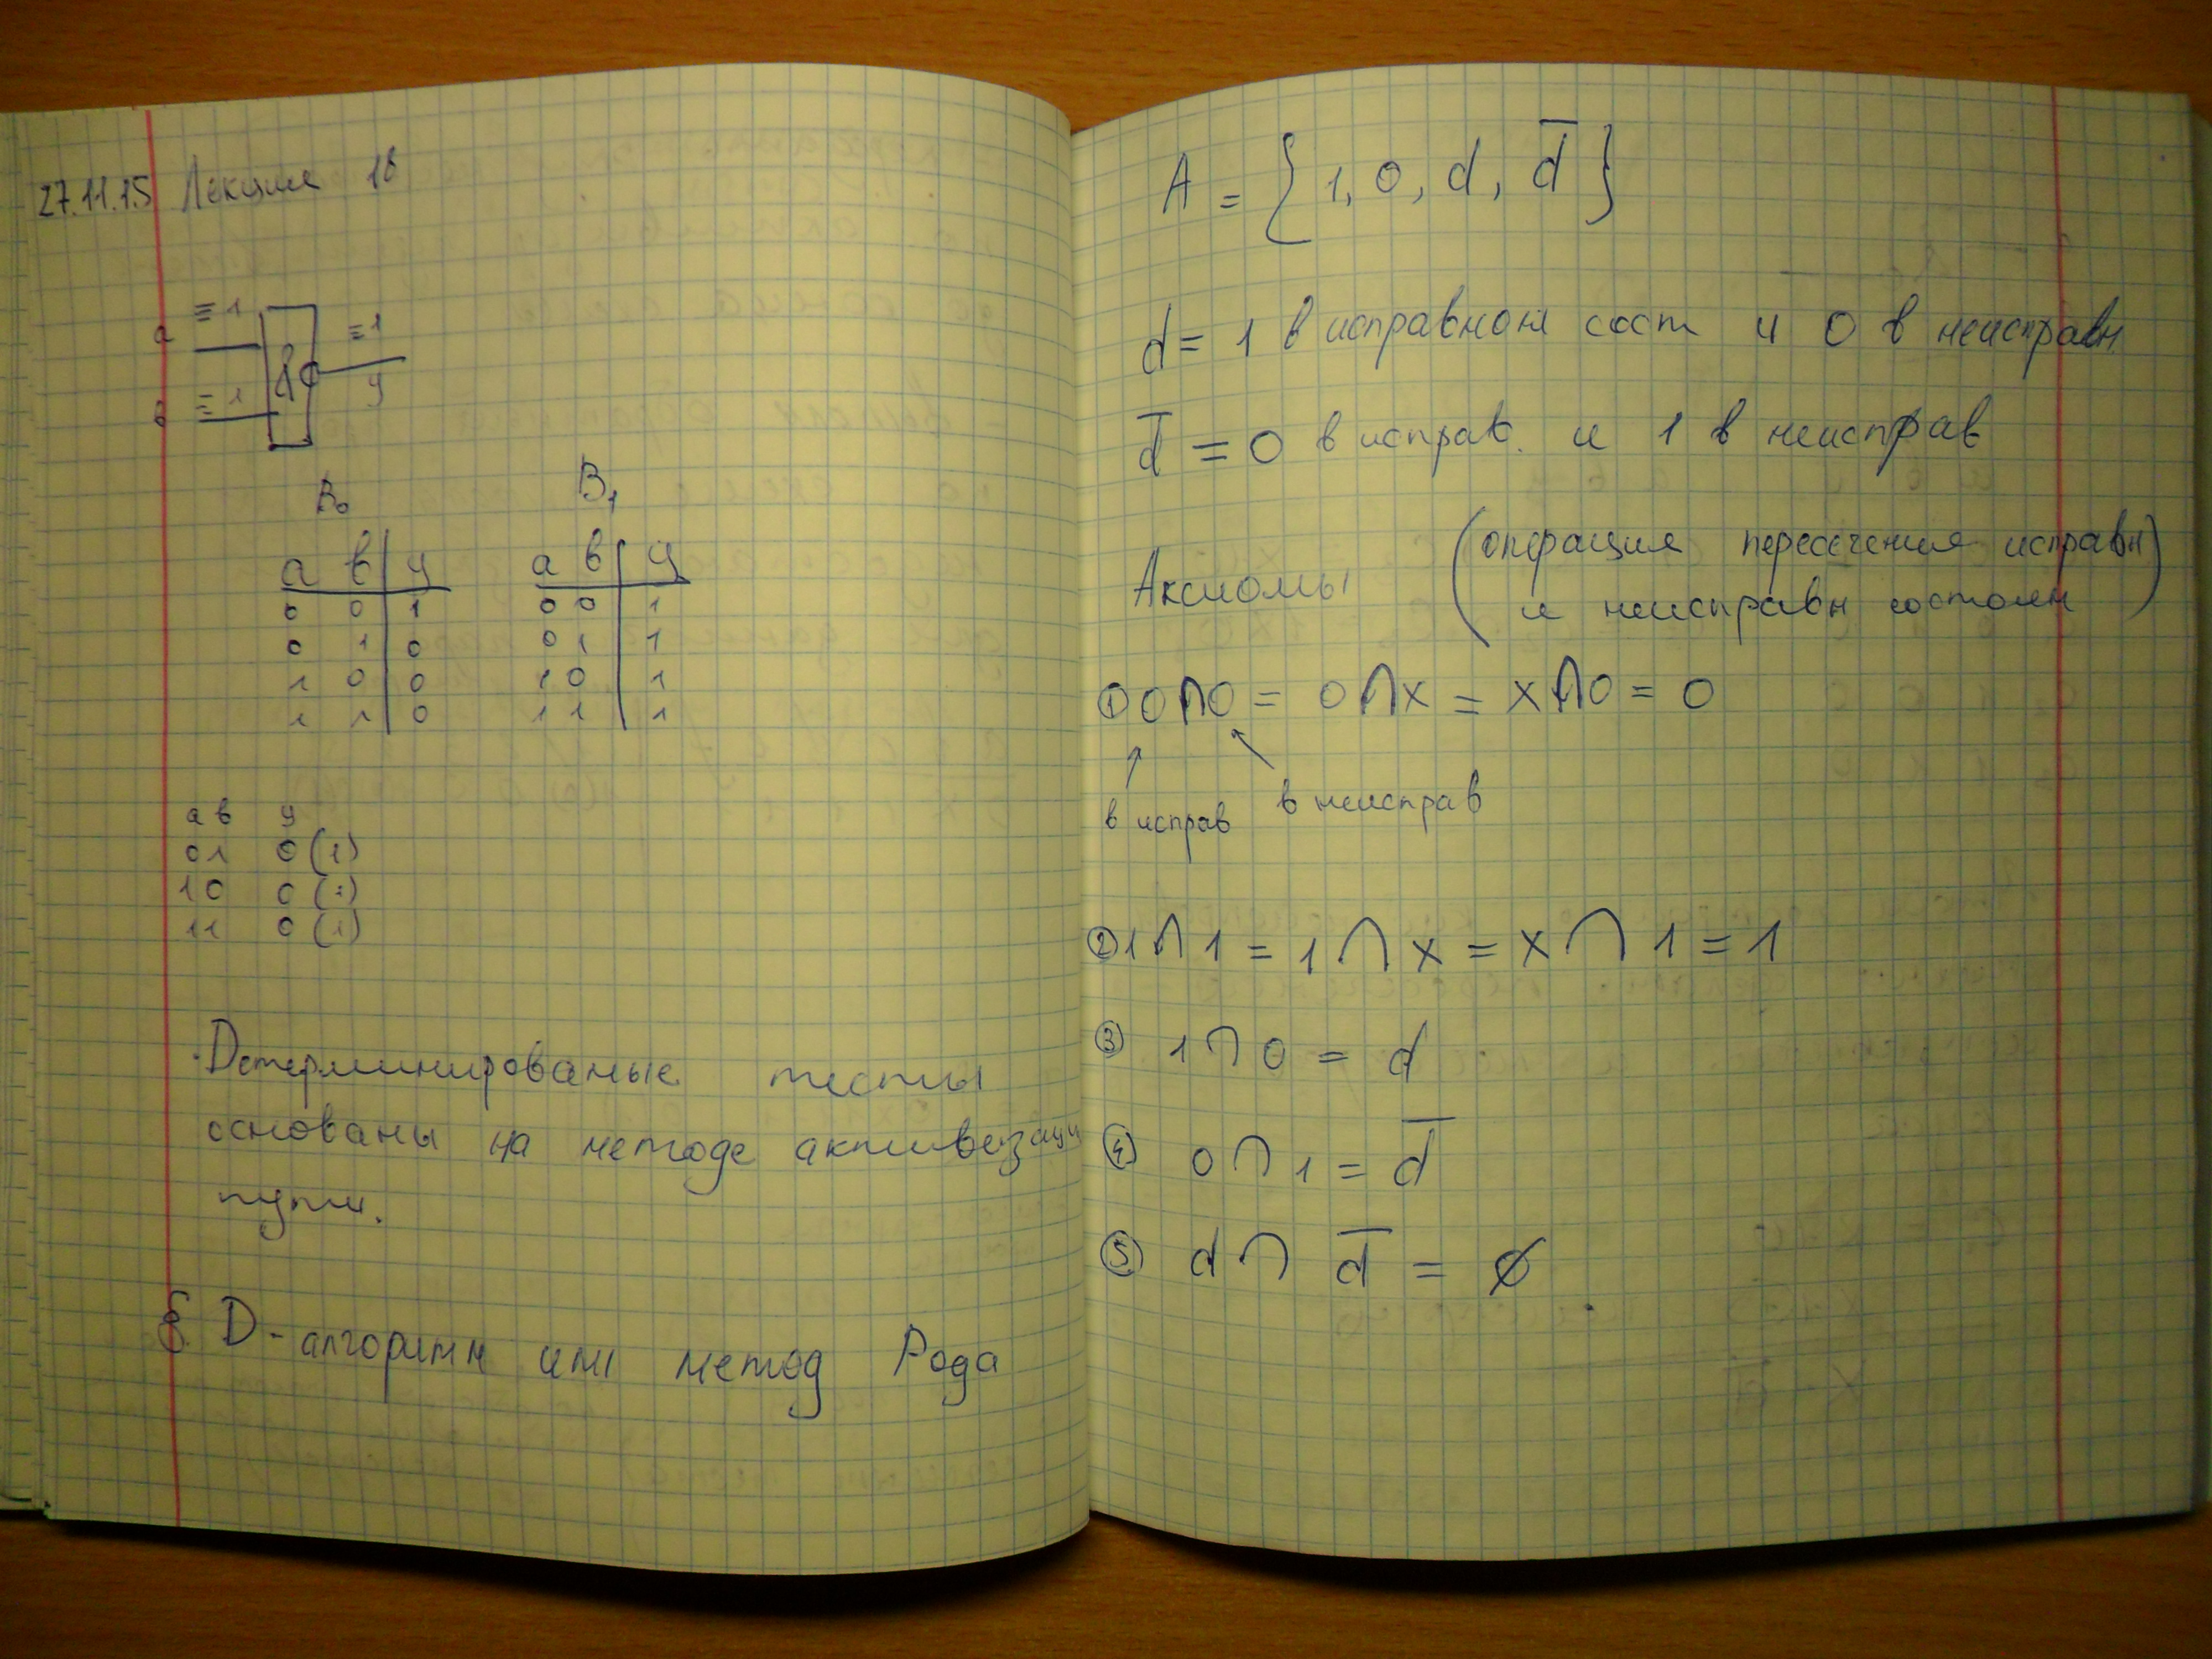 27.11.15 Лекция 18
≡1
a
≡1
в ≡1
y
B₀ B₁
a в y a в y
0 0 1 0 0 1
0 1 0 0 1 1
1 0 0 1 0 1
1 1 0 1 1 1
a в y
01 0 (1)
10 0 (1)
11 0 (1)
Детерминированые тесты
основаны на методе активизаци
пути.
§ D-алгоритм или метод Рода
A = {1, 0, d, d̅}
d = 1 в исправном сост и 0 в неисправн
d̅ = 0 в исправ. и 1 в неисправ
Аксиомы (операция пересечения исправн
и неисправн состоян)
① 0∩0 = 0∩x = x∩0 = 0
↑ ↖
в исправ в неисправ
② 1∩1 = 1∩x = x∩1 = 1
③ 1∩0 = d
④ 0∩1 = d̅
⑤ d∩d̅ = ∅